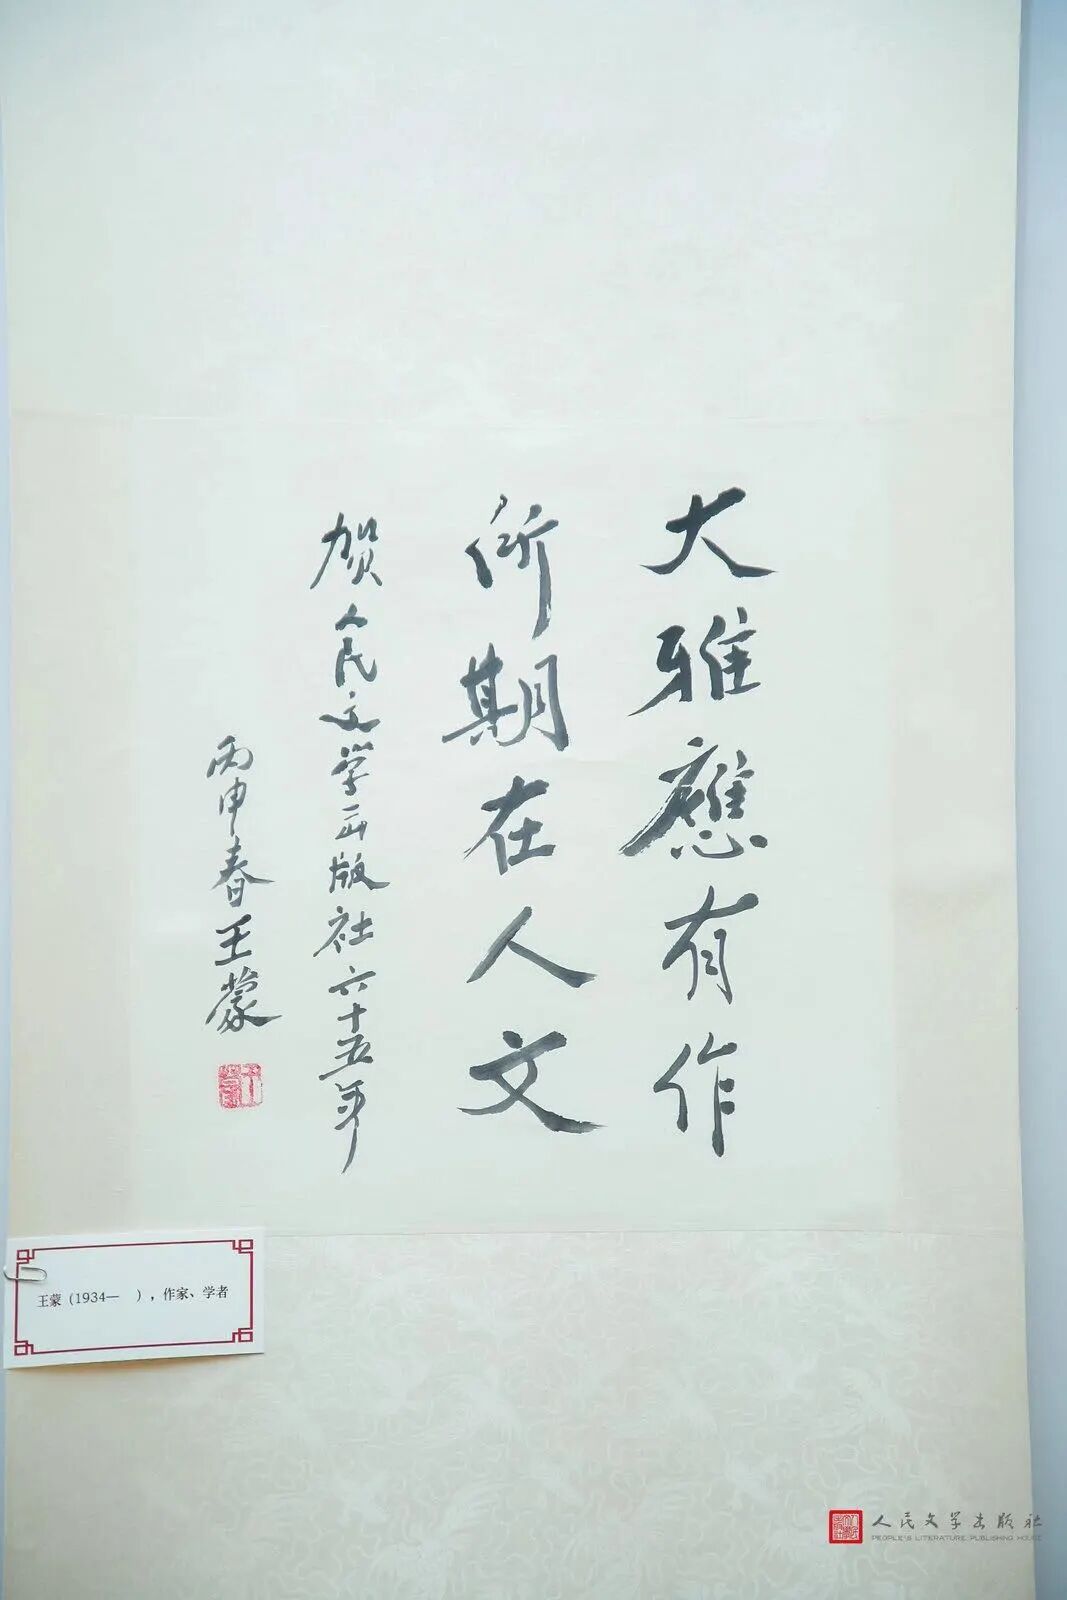 大雅應有作
所期在人文
贺人民文学出版社六十五年
丙申春王蒙
王蒙
王蒙（1934—　），作家、学者
人民文学出版社
PEOPLE'S LITERATURE PUBLISHING HOUSE